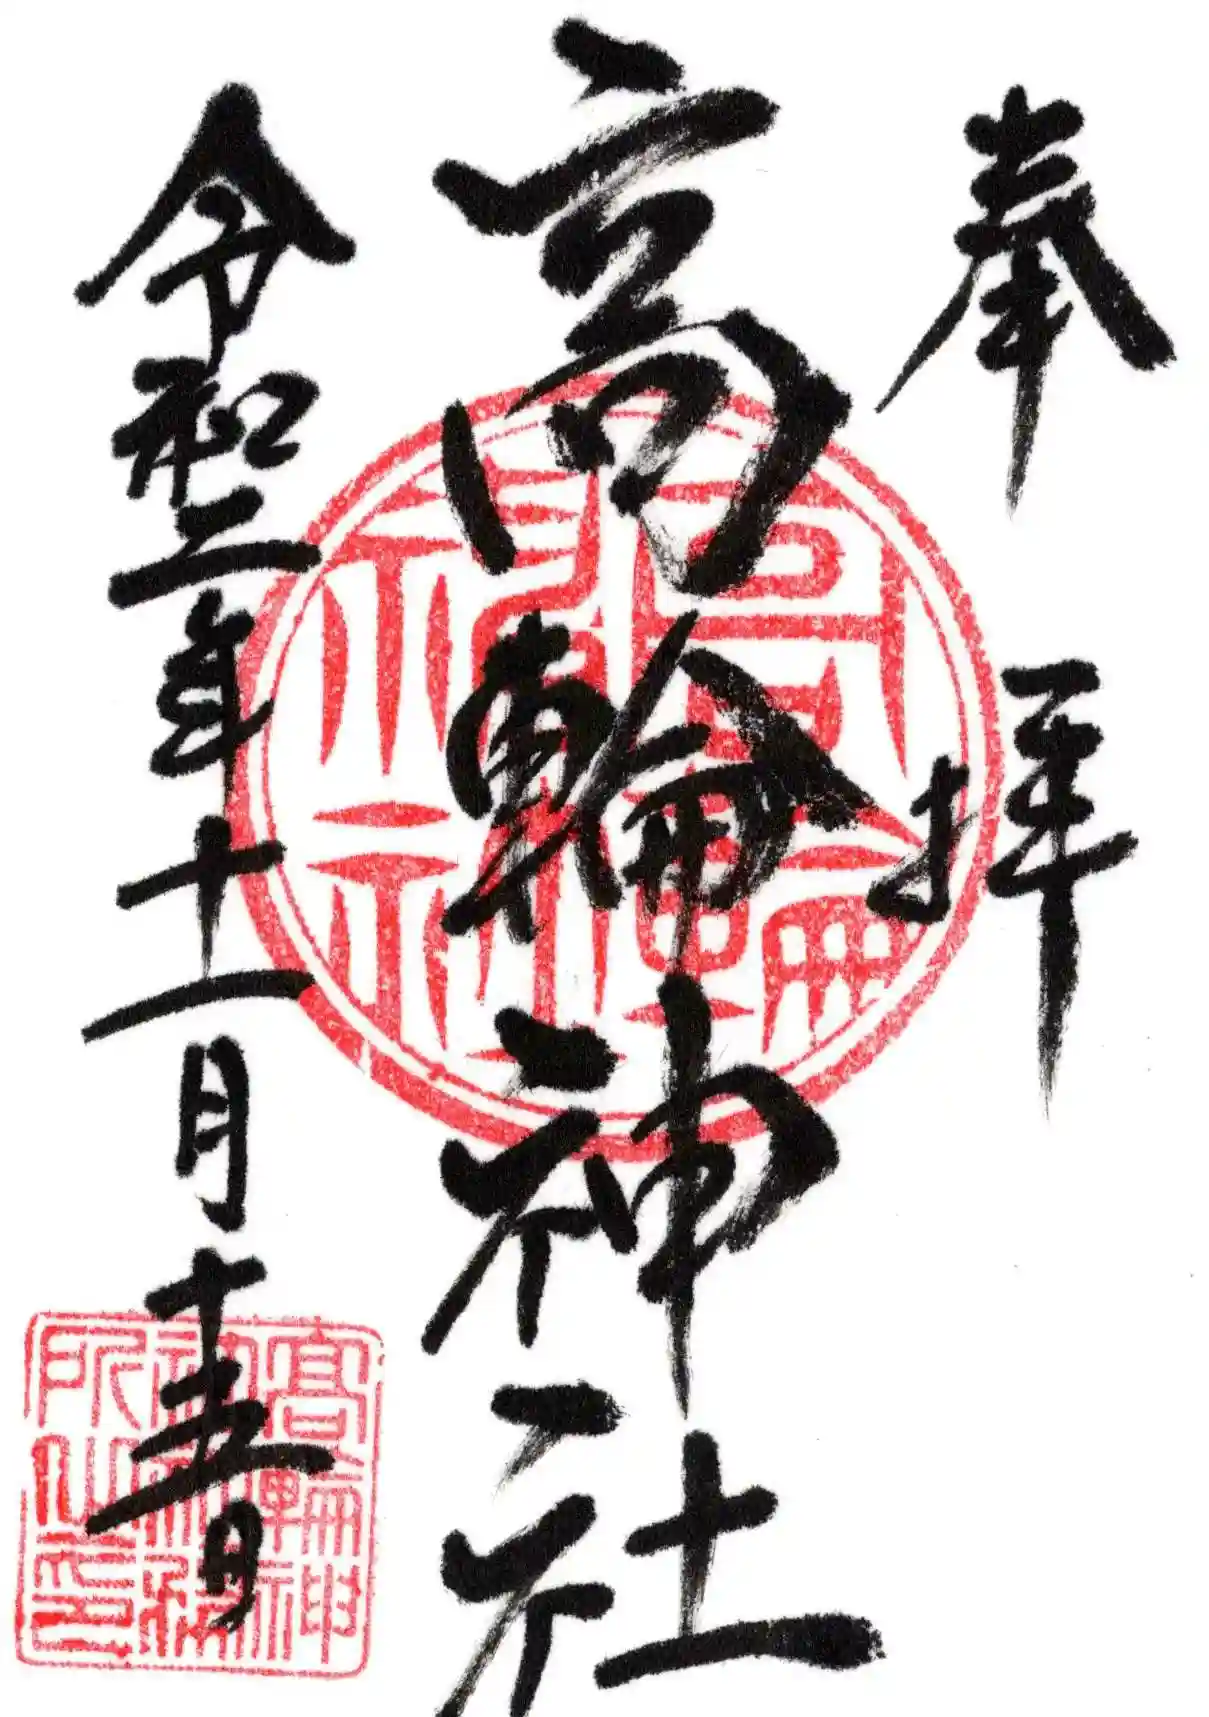 奉拝
高輪神社
令和二年十一月十五日
高輪神社
高輪神
社社務
所之印